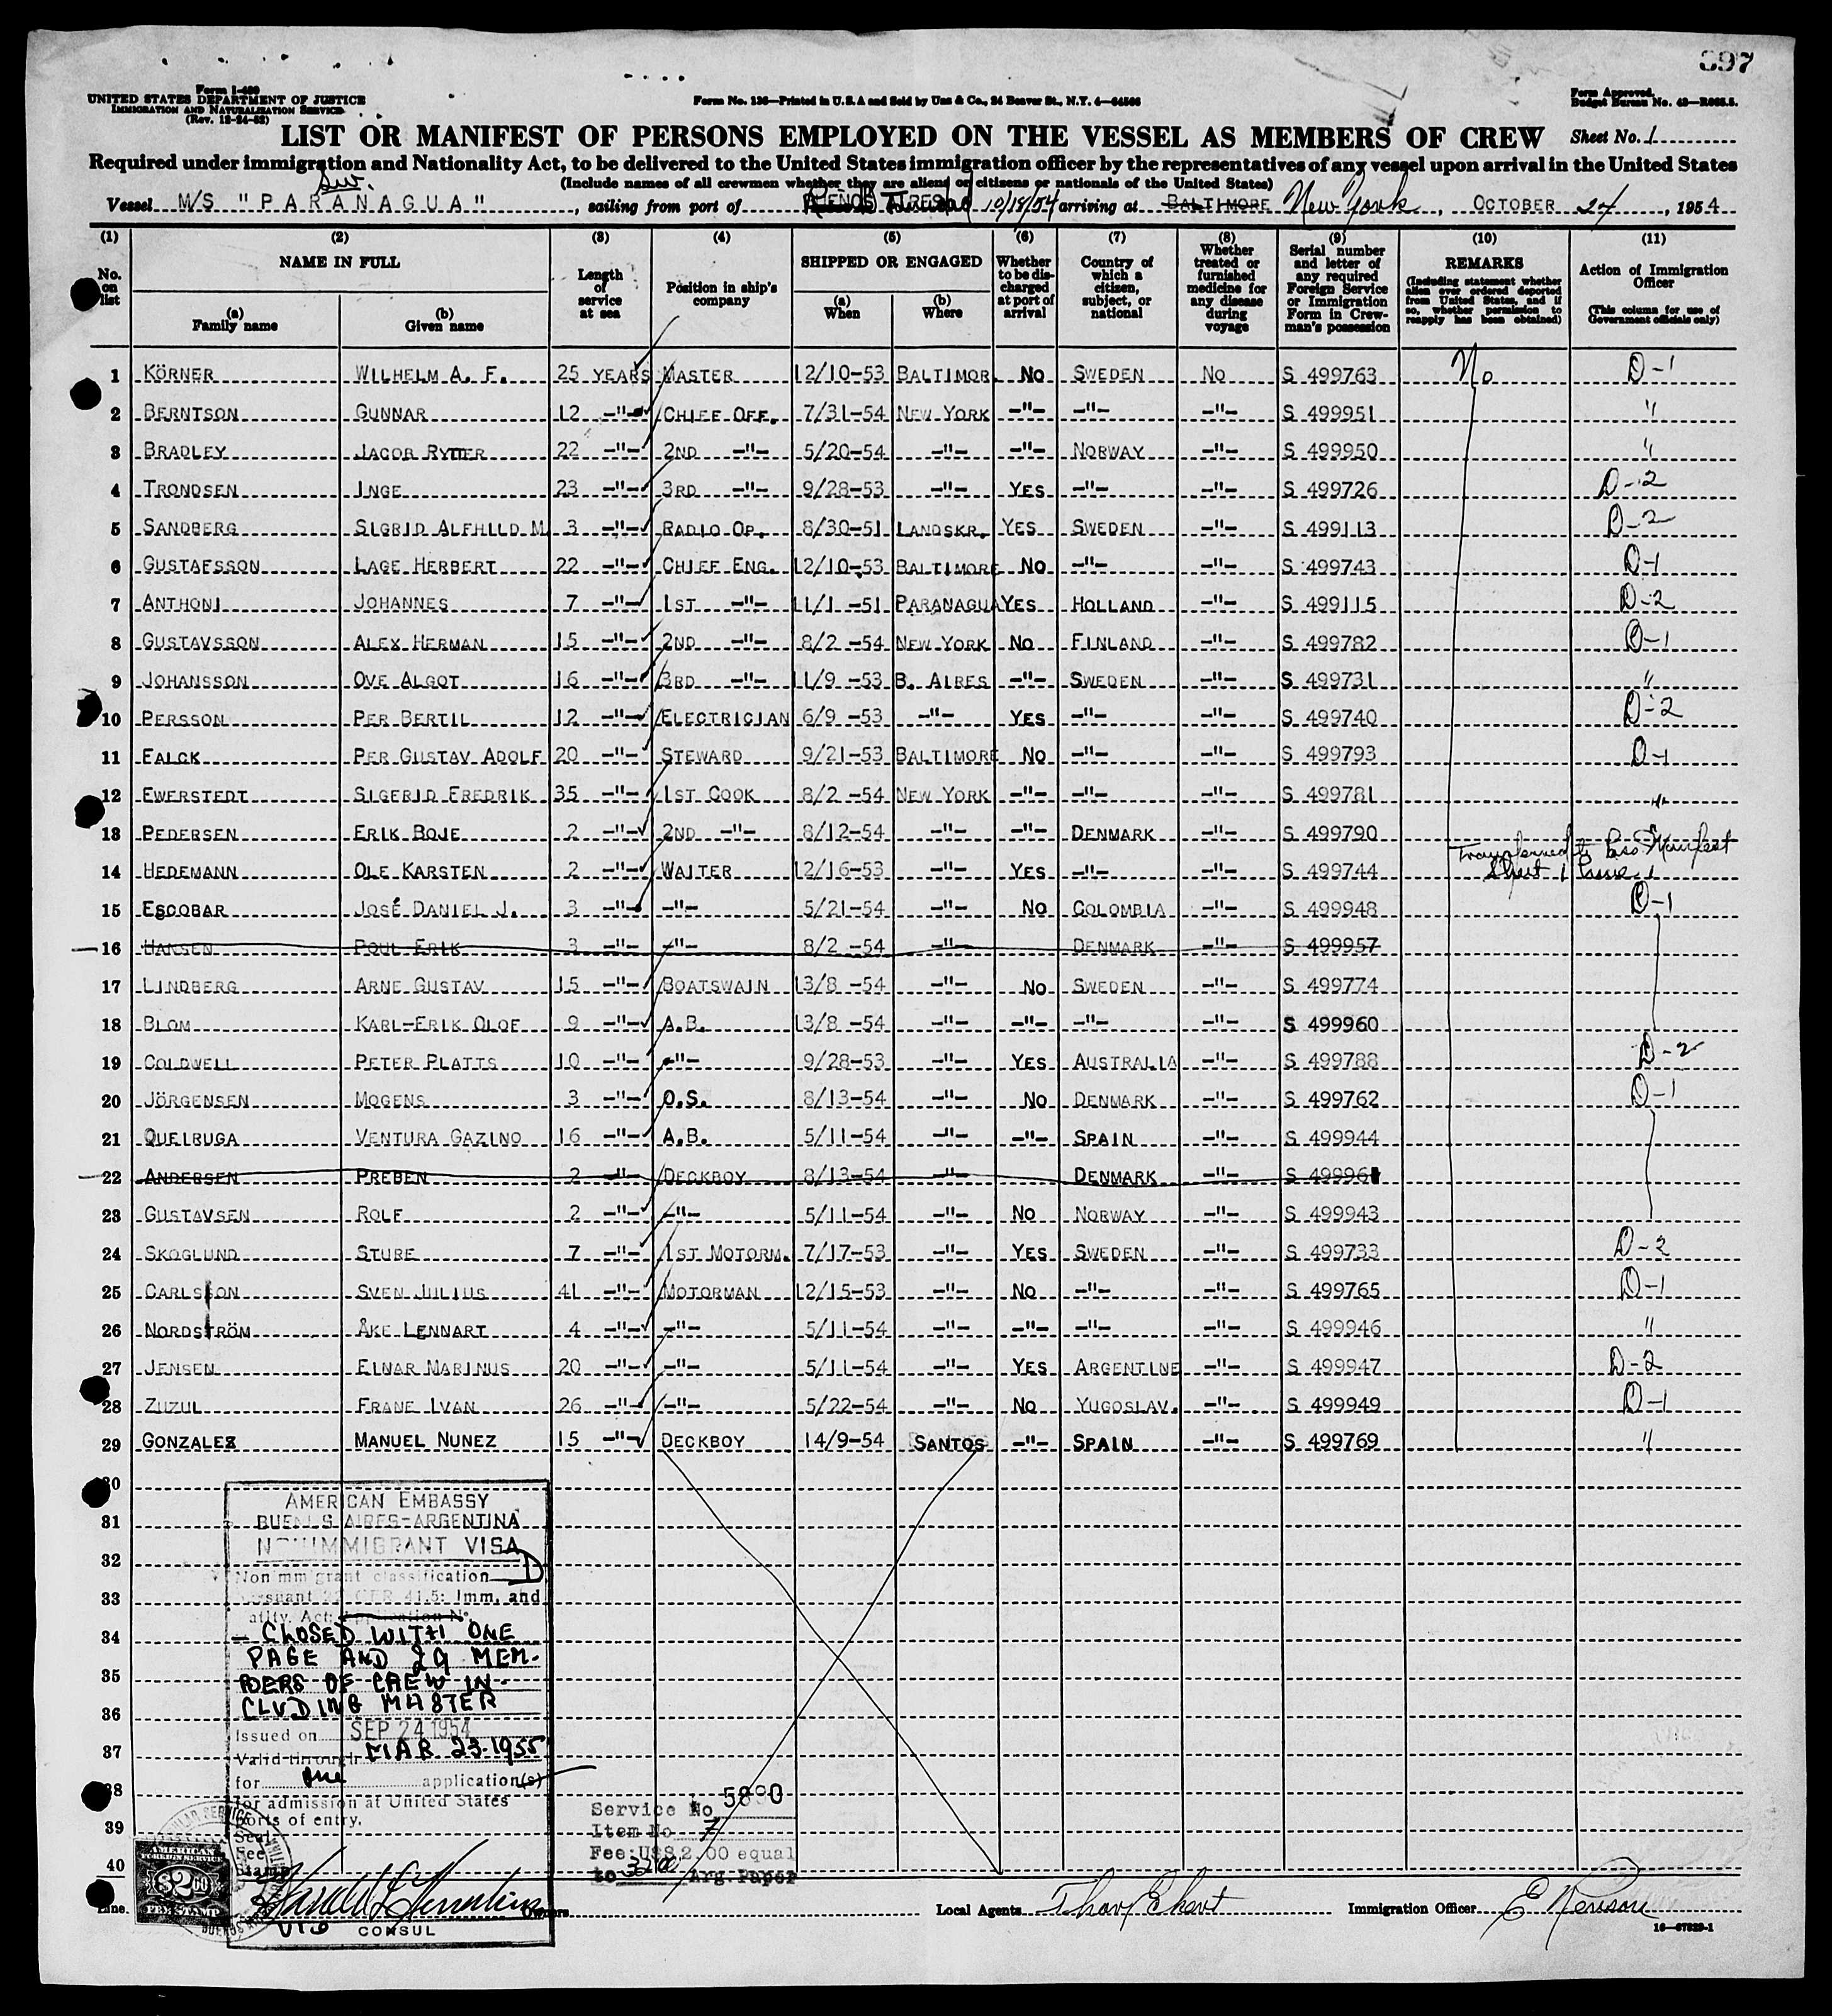 397
Form I-480
UNITED STATES DEPARTMENT OF JUSTICE
IMMIGRATION AND NATURALIZATION SERVICE
(Rev. 12-24-52)
Form No. 136—Printed in U.S.A and Sold by Unz & Co., 24 Beaver St., N.Y. 4—64566
Form Approved.
Budget Bureau No. 43—R065.5.
LIST OR MANIFEST OF PERSONS EMPLOYED ON THE VESSEL AS MEMBERS OF CREW Sheet No. 1
Required under immigration and Nationality Act, to be delivered to the United States immigration officer by the representatives of any vessel upon arrival in the United States
(Include names of all crewmen whether they are aliens or citizens or nationals of the United States)
Sw.
Vessel M/S "PARANAGUA", sailing from port of BUENOS AIRES 10/18/54 arriving at BALTIMORE New York, OCTOBER 24, 1954
(1) (2) (3) (4) (5) (6) (7) (8) (9) (10) (11)
No. on list
NAME IN FULL
(a) Family name
(b) Given name
Length of service at sea
Position in ship's company
SHIPPED OR ENGAGED
(a) When
(b) Where
Whether to be discharged at port of arrival
Country of which a citizen, subject, or national
Whether treated or furnished medicine for any disease during voyage
Serial number and letter of any required Foreign Service or Immigration Form in Crewman's possession
REMARKS
(Including statement whether alien ever ordered deported from United States, and if so, whether permission to reapply has been obtained)
Action of Immigration Officer
(This column for use of Government officials only)
1 KÖRNER WILHELM A. F. 25 YEARS MASTER 12/10-53 BALTIMOR. No SWEDEN No S 499763 No D-1
2 BERNTSON GUNNAR 12 -"- CHIEF OFF. 7/31-54 NEW YORK -"- -"- -"- S 499951 "
3 BRADLEY JACOB RYTTER 22 -"- 2ND -"- 5/20-54 -"- -"- NORWAY -"- S 499950 "
4 TRONDSEN INGE 23 -"- 3RD -"- 9/28-53 -"- YES -"- -"- S 499726 D-2
5 SANDBERG SIGRID ALFHILD M. 3 -"- RADIO OP. 8/30-51 LANDSKR. YES SWEDEN -"- S 499113 D-2
6 GUSTAFSSON LAGE HERBERT 22 -"- CHIEF ENG. 12/10-53 BALTIMORE No -"- -"- S 499743 D-1
7 ANTHONI JOHANNES 7 -"- 1ST -"- 11/1 -51 PARANAGUA YES HOLLAND -"- S 499115 D-2
8 GUSTAVSSON ALEX HERMAN 15 -"- 2ND -"- 8/2 -54 NEW YORK No FINLAND -"- S 499782 D-1
9 JOHANSSON OVE ALGOT 16 -"- 3RD -"- 11/9 -53 B. AIRES -"- SWEDEN -"- S 499731 "
10 PERSSON PER BERTIL 12 -"- ELECTRICIAN 6/9 -53 -"- YES -"- -"- S 499740 D-2
11 FALCK PER GUSTAV ADOLF 20 -"- STEWARD 9/21-53 BALTIMORE No -"- -"- S 499793 D-1
12 EWERSTEDT SIGFRID FREDRIK 35 -"- 1ST COOK 8/2 -54 NEW YORK -"- -"- -"- S 499781 "
13 PEDERSEN ERIK BOJE 2 -"- 2ND -"- 8/12-54 -"- -"- DENMARK -"- S 499790 "
Transferred to Pass Manifest
14 HEDEMANN OLE KARSTEN 2 -"- WAITER 12/16-53 -"- YES -"- -"- S 499744 Sheet 1 Line 1
15 ESCOBAR JOSÉ DANIEL J. 3 -"- -"- 5/21-54 -"- No COLOMBIA -"- S 499948 D-1
16 HANSEN POUL ERIK 3 -"- -"- 8/2 -54 -"- DENMARK -"- S 499957
17 LINDBERG ARNE GUSTAV 15 -"- BOATSWAIN 13/8 -54 -"- No SWEDEN -"- S 499774
18 BLOM KARL-ERIK OLOF 9 -"- A.B. 13/8 -54 -"- -"- -"- -"- S 499960
19 COLDWELL PETER PLATTS 10 -"- -"- 9/28-53 -"- YES AUSTRALIA -"- S 499788 D-2
20 JÖRGENSEN MOGENS 3 -"- O.S. 8/13-54 -"- No DENMARK -"- S 499762 D-1
21 QUEIRUGA VENTURA GAZINO 16 -"- A.B. 5/11-54 -"- -"- SPAIN -"- S 499944
22 ANDERSEN PREBEN 2 -"- DECKBOY 8/13-54 -"- DENMARK -"- S 499961
23 GUSTAVSEN ROLF 2 -"- -"- 5/11-54 -"- No NORWAY -"- S 499943
24 SKOGLUND STURE 7 -"- 1ST MOTORM. 7/17-53 -"- YES SWEDEN -"- S 499733 D-2
25 CARLSSON SVEN JULIUS 41 -"- MOTORMAN 12/15-53 -"- No -"- -"- S 499765 D-1
26 NORDSTRÖM ÅKE LENNART 4 -"- -"- 5/11-54 -"- -"- -"- -"- S 499946 "
27 JENSEN EINAR MARINUS 20 -"- -"- 5/11-54 -"- YES ARGENTINE -"- S 499947 D-2
28 ZUZUL FRANE IVAN 26 -"- -"- 5/22-54 -"- No YUGOSLAV. -"- S 499949 D-1
29 GONZALEZ MANUEL NUNEZ 15 -"- DECKBOY 14/9-54 SANTOS -"- SPAIN -"- S 499769 "
30
31
32
33
34
35
36
37
38
39
40
AMERICAN EMBASSY
BUENOS AIRES-ARGENTINA
NONIMMIGRANT VISA
Nonimmigrant classification D
pursuant 22 CFR 41.5: Imm. and
atlty. Act: Application No.
— CLOSED WITH ONE
PAGE AND 29 MEM-
BERS OF CREW IN-
CLUDING MASTER
Issued on SEP 24 1954
Valid through MAR 23-1955
for one application(s)
for admission at United States
ports of entry.
Seal
Fee
Stamp
AMERICAN
FOREIGN SERVICE
$2.00
FEE STAMP
VICE CONSUL
Service No 5890
Item No 7
Fee: US$ 2.00 equal
to 32.00 Arg. Paper
Line Owners Local Agents Thor Eckert Immigration Officer E Kenison
16—67829-1